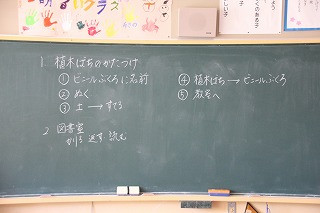 1. 植木ばちのかたづけ
① ビニールぶくろに名前
② ぬく
③ 土 → すてる
④ 植木ばち → ビニールぶくろ
⑤ 教室へ
2. 図書室
かりる 返す 読む